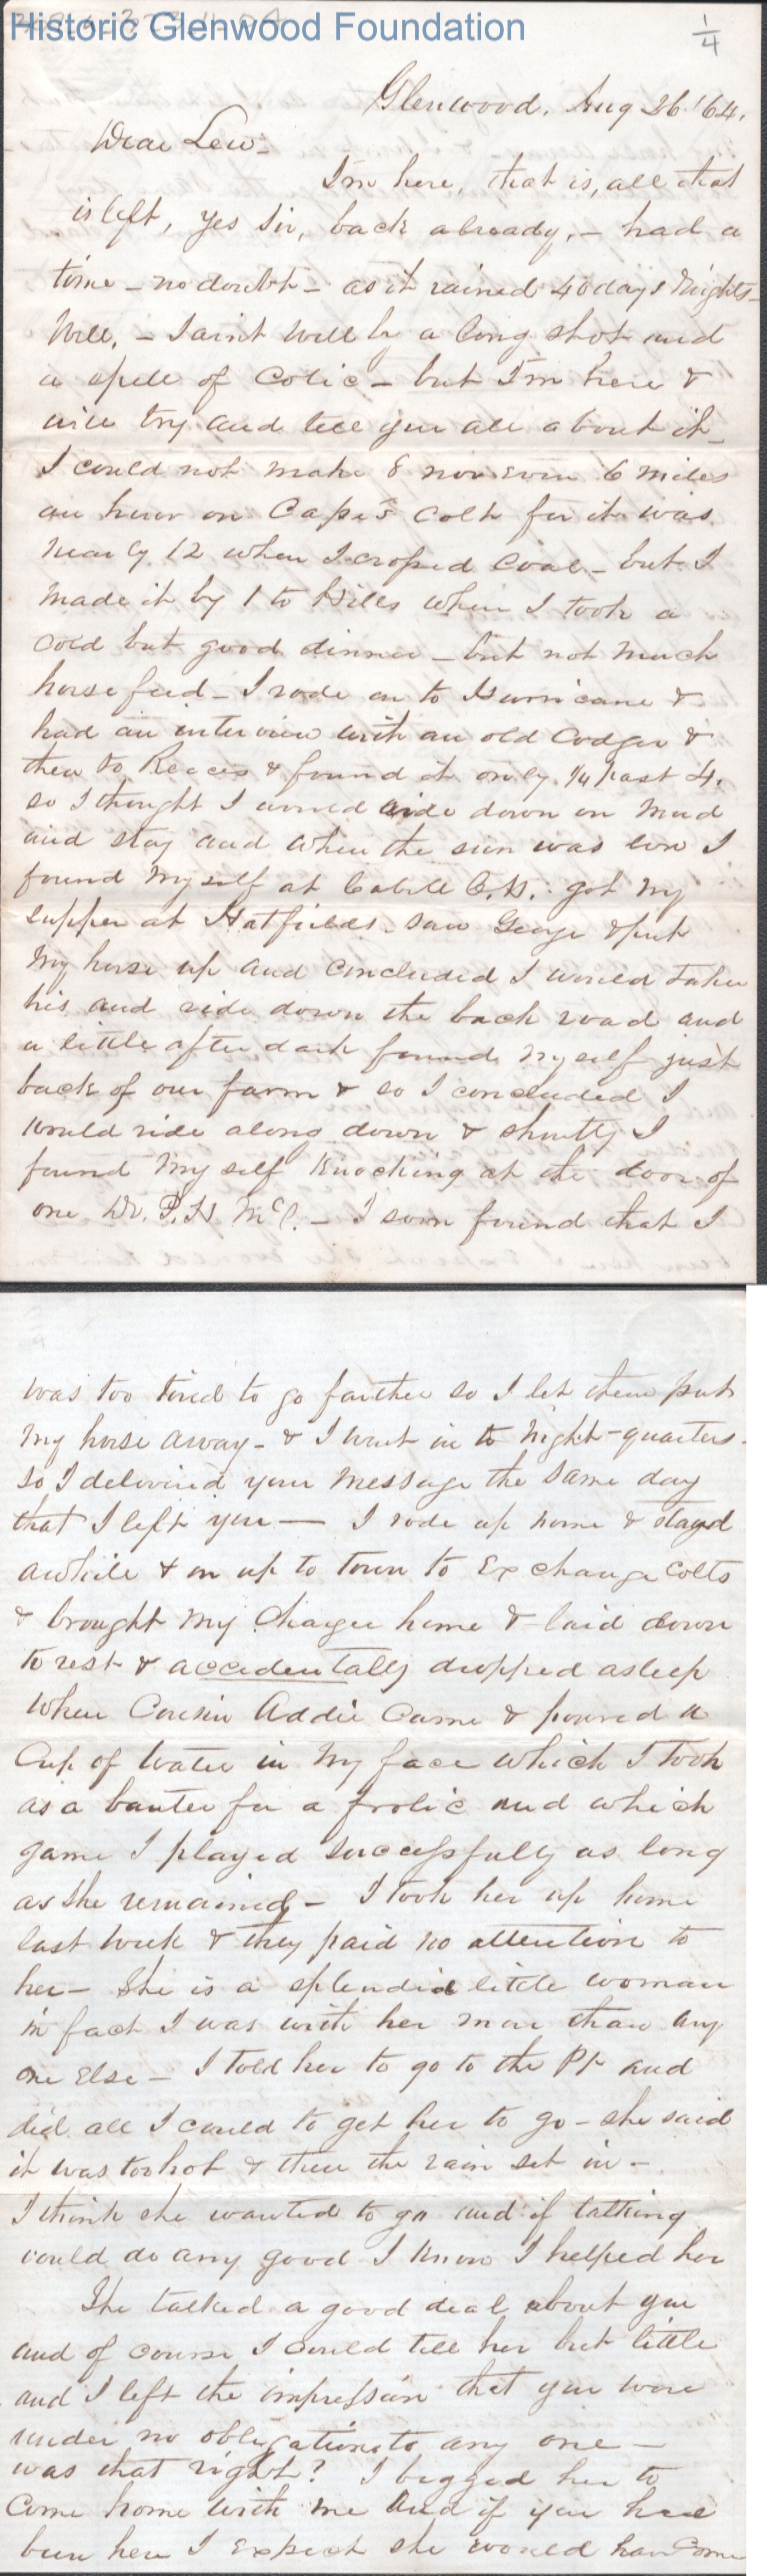 Historic Glenwood Foundation
1/4
Glenwood, Aug 26 '64.
Dear Lew-
I'm here, that is, all that
is left, yes Sir, back already, - had a
time - no doubt - as it rained 40 days & nights -
Well, - I aint well by a long shot and
a spell of Colic - but I'm here &
will try and tell you all about it -
I could not make 8 nor even 6 miles
an hour on Cape's Colt for it was
nearly 12 when I crossed Coal - but I
made it by 1 to Hills when I took a
cold but good dinner - but not much
horse feed - I rode on to Hurricane &
had an interview with an old Codger &
then to Reeces & found it only 1/4 past 4.
so I thought I would ride down on Mud
and stay and when the sun was low I
found myself at Cabell C.H. got my
supper at Hatfields. saw George & put
my horse up and concluded I would take
his and ride down the back road and
a little after dark found myself just
back of our farm & so I concluded I
would ride along down & shortly I
found my self knocking at the door of
one Dr. P.H. McC. - I soon found that I
was too tired to go farther so I let them put
my horse away - & I went in to night-quarters -
so I delivered your message the same day
that I left you — I rode up home & stayd
awhile & on up to town to Exchange Colts
& brought my Charger home & laid down
to rest & accidentally dropped asleep
when Cousin Addie came & poured a
Cup of water in my face which I took
as a banter for a frolic and which
game I played successfully as long
as she remained - I took her up home
last week & they paid no attention to
her - She is a splendid little woman
in fact I was with her more than any
one Else - I told her to go to the Pt and
did all I could to get her to go - she said
it was too hot & then the rain set in -
I think she wanted to go and if talking
could do any good I know I helped her
She talked a good deal about you
and of course I could tell her but little
and I left the impression that you were
under no obligations to any one —
was that right? I begged her to
Come home with me and if you had
been here I Expect she would have Come